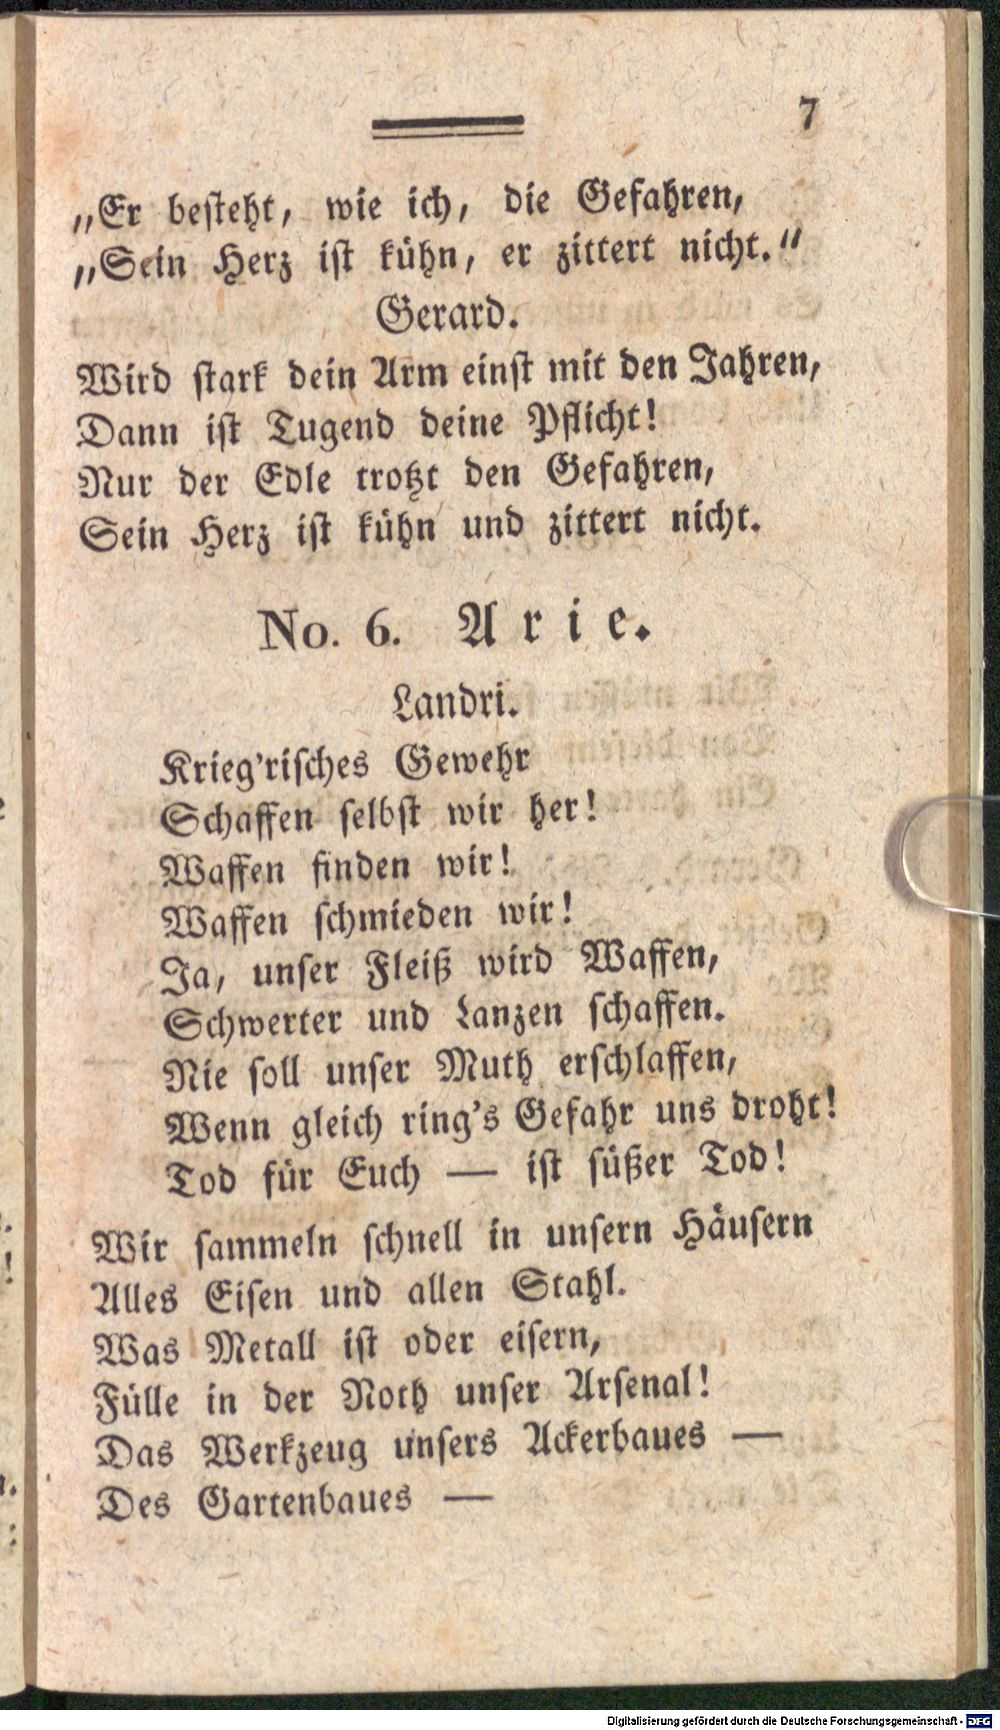 7
„Er besteht, wie ich, die Gefahren,
„Sein Herz ist kühn, er zittert nicht.“
Gerard.
Wird stark dein Arm einst mit den Jahren,
Dann ist Tugend deine Pflicht!
Nur der Edle trotzt den Gefahren,
Sein Herz ist kühn und zittert nicht.
No. 6. Arie.
Landri.
Krieg'risches Gewehr
Schaffen selbst wir her!
Waffen finden wir!
Waffen schmieden wir!
Ja, unser Fleiß wird Waffen,
Schwerter und Lanzen schaffen.
Nie soll unser Muth erschlaffen,
Wenn gleich ring's Gefahr uns droht!
Tod für Euch — ist süßer Tod!
Wir sammeln schnell in unsern Häusern
Alles Eisen und allen Stahl.
Was Metall ist oder eisern,
Fülle in der Noth unser Arsenal!
Das Werkzeug unsers Ackerbaues —
Des Gartenbaues —
Digitalisierung gefördert durch die Deutsche Forschungsgemeinschaft - DFG